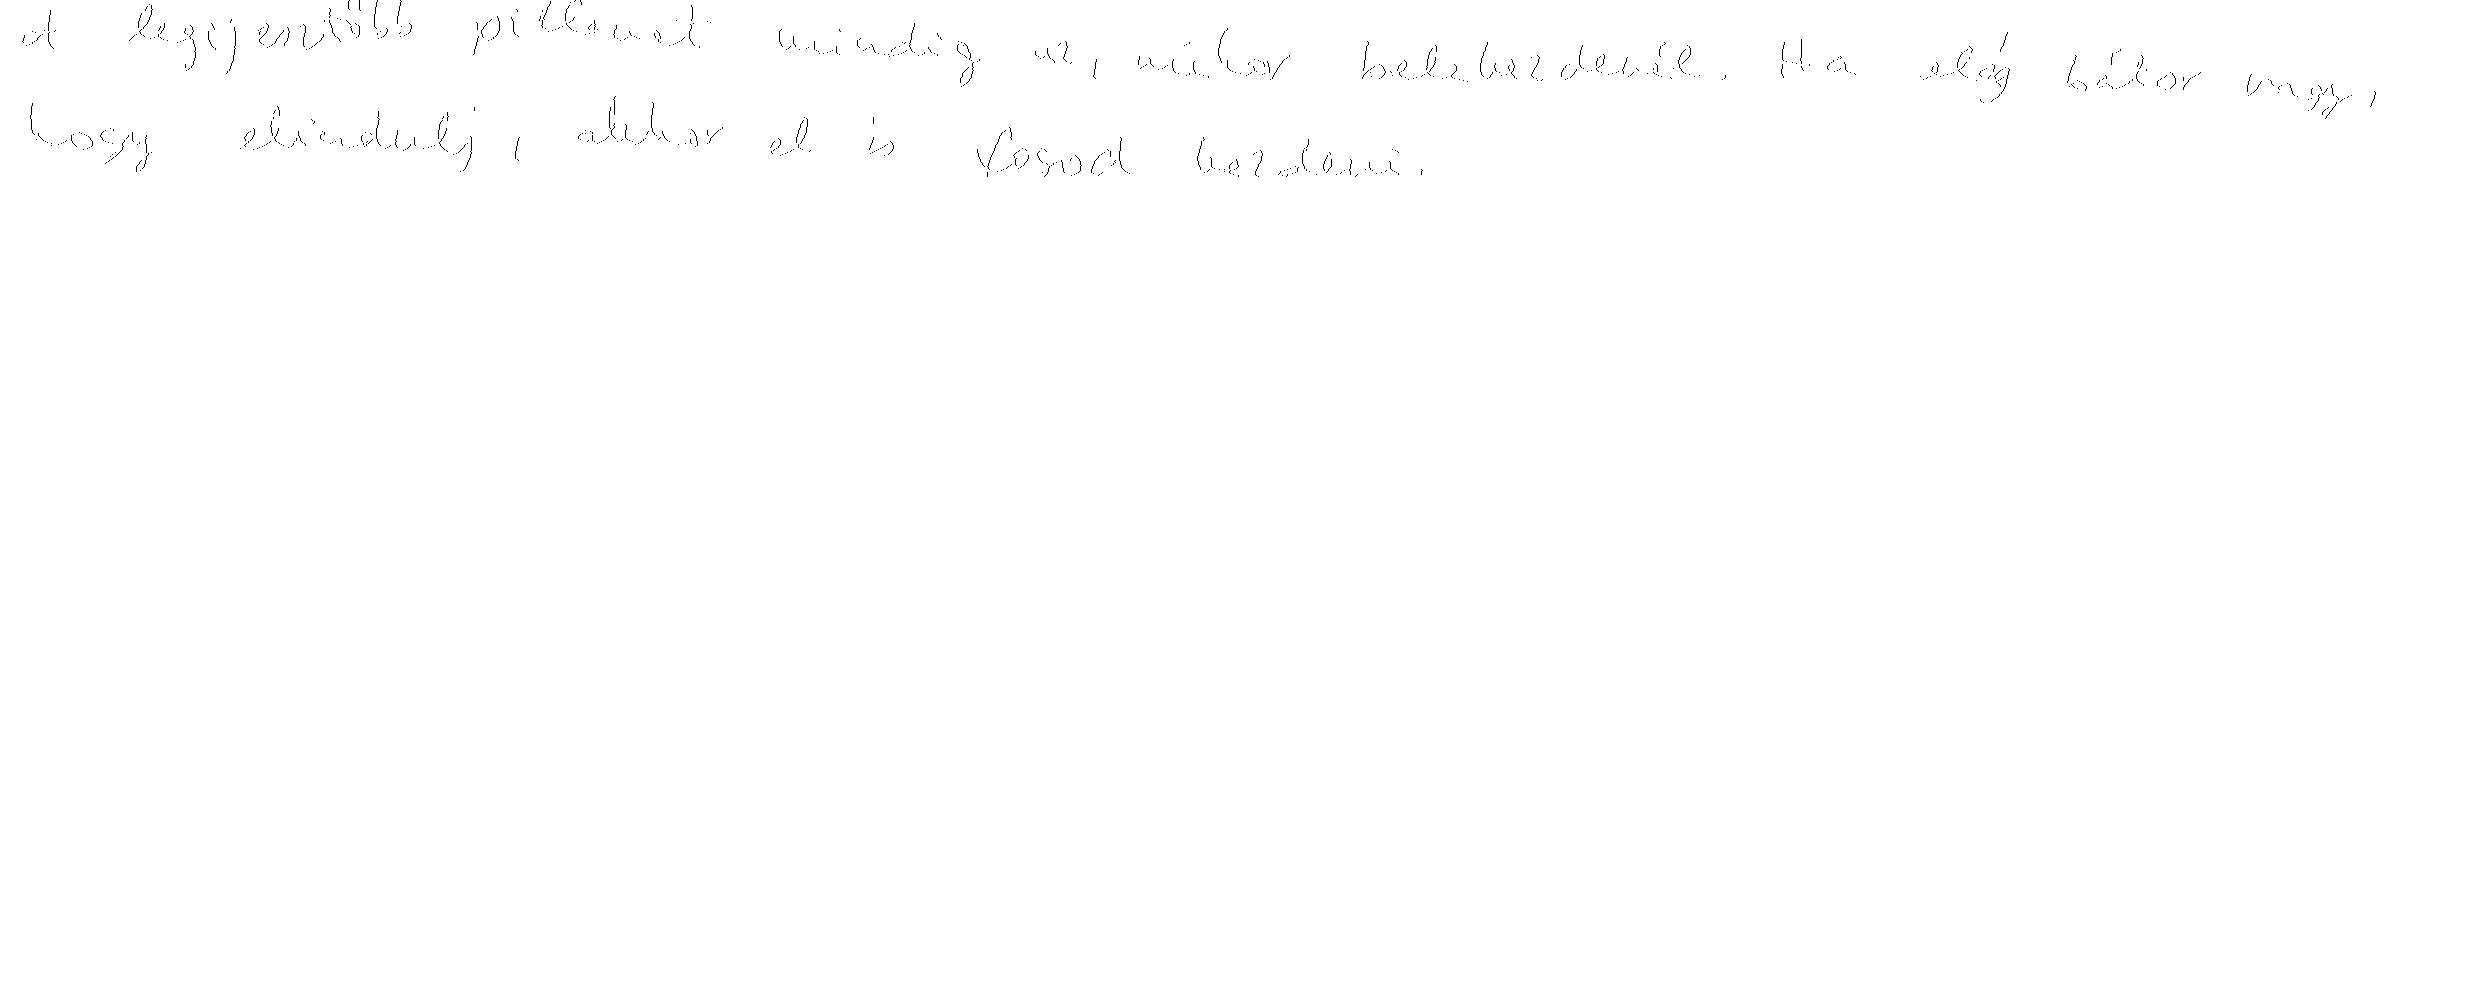 A legijesztőbb pillanat mindig az, mikor belekezdenél. Ha elég bátor vagy,
hogy elindulj, akkor el is fogod kezdeni.